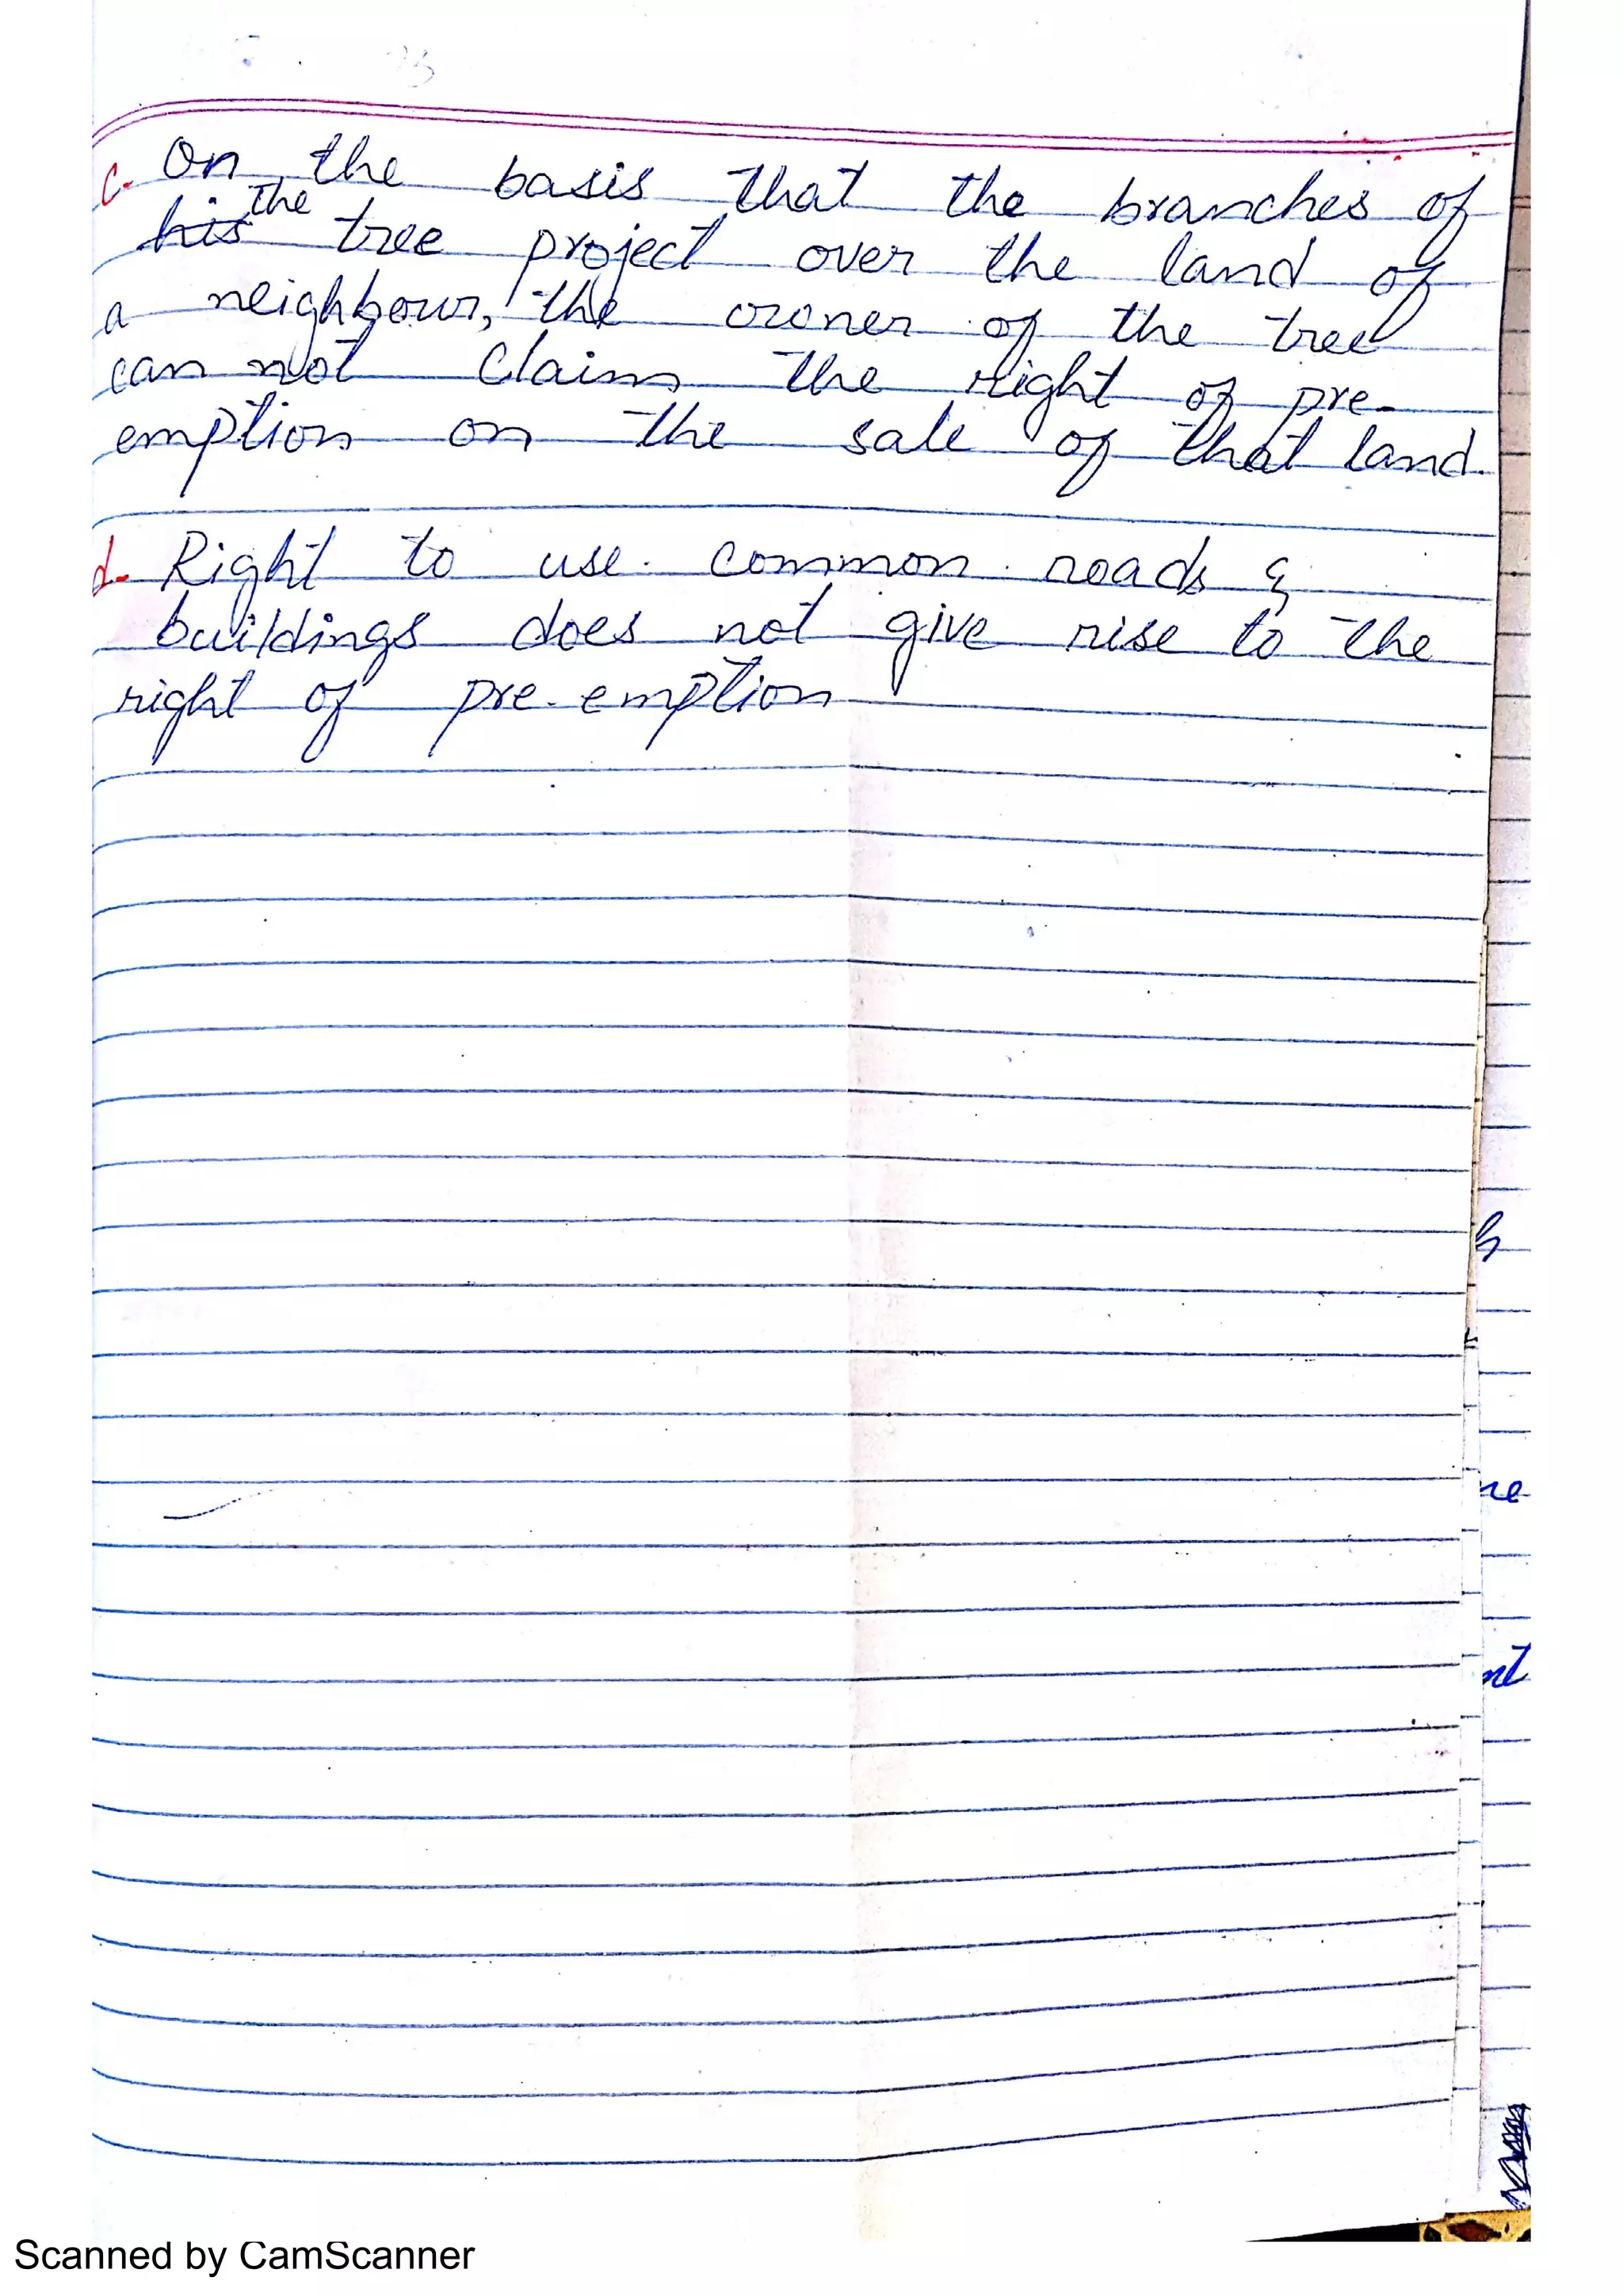 c. On the basis that the branches of
his the tree project over the land of
a neighbour, the owner of the tree
can not claim the right of pre-
emption on the sale of that land.
d. Right to use common roads &
buildings does not give rise to the
right of pre-emption
h
re
nt
Scanned by CamScanner